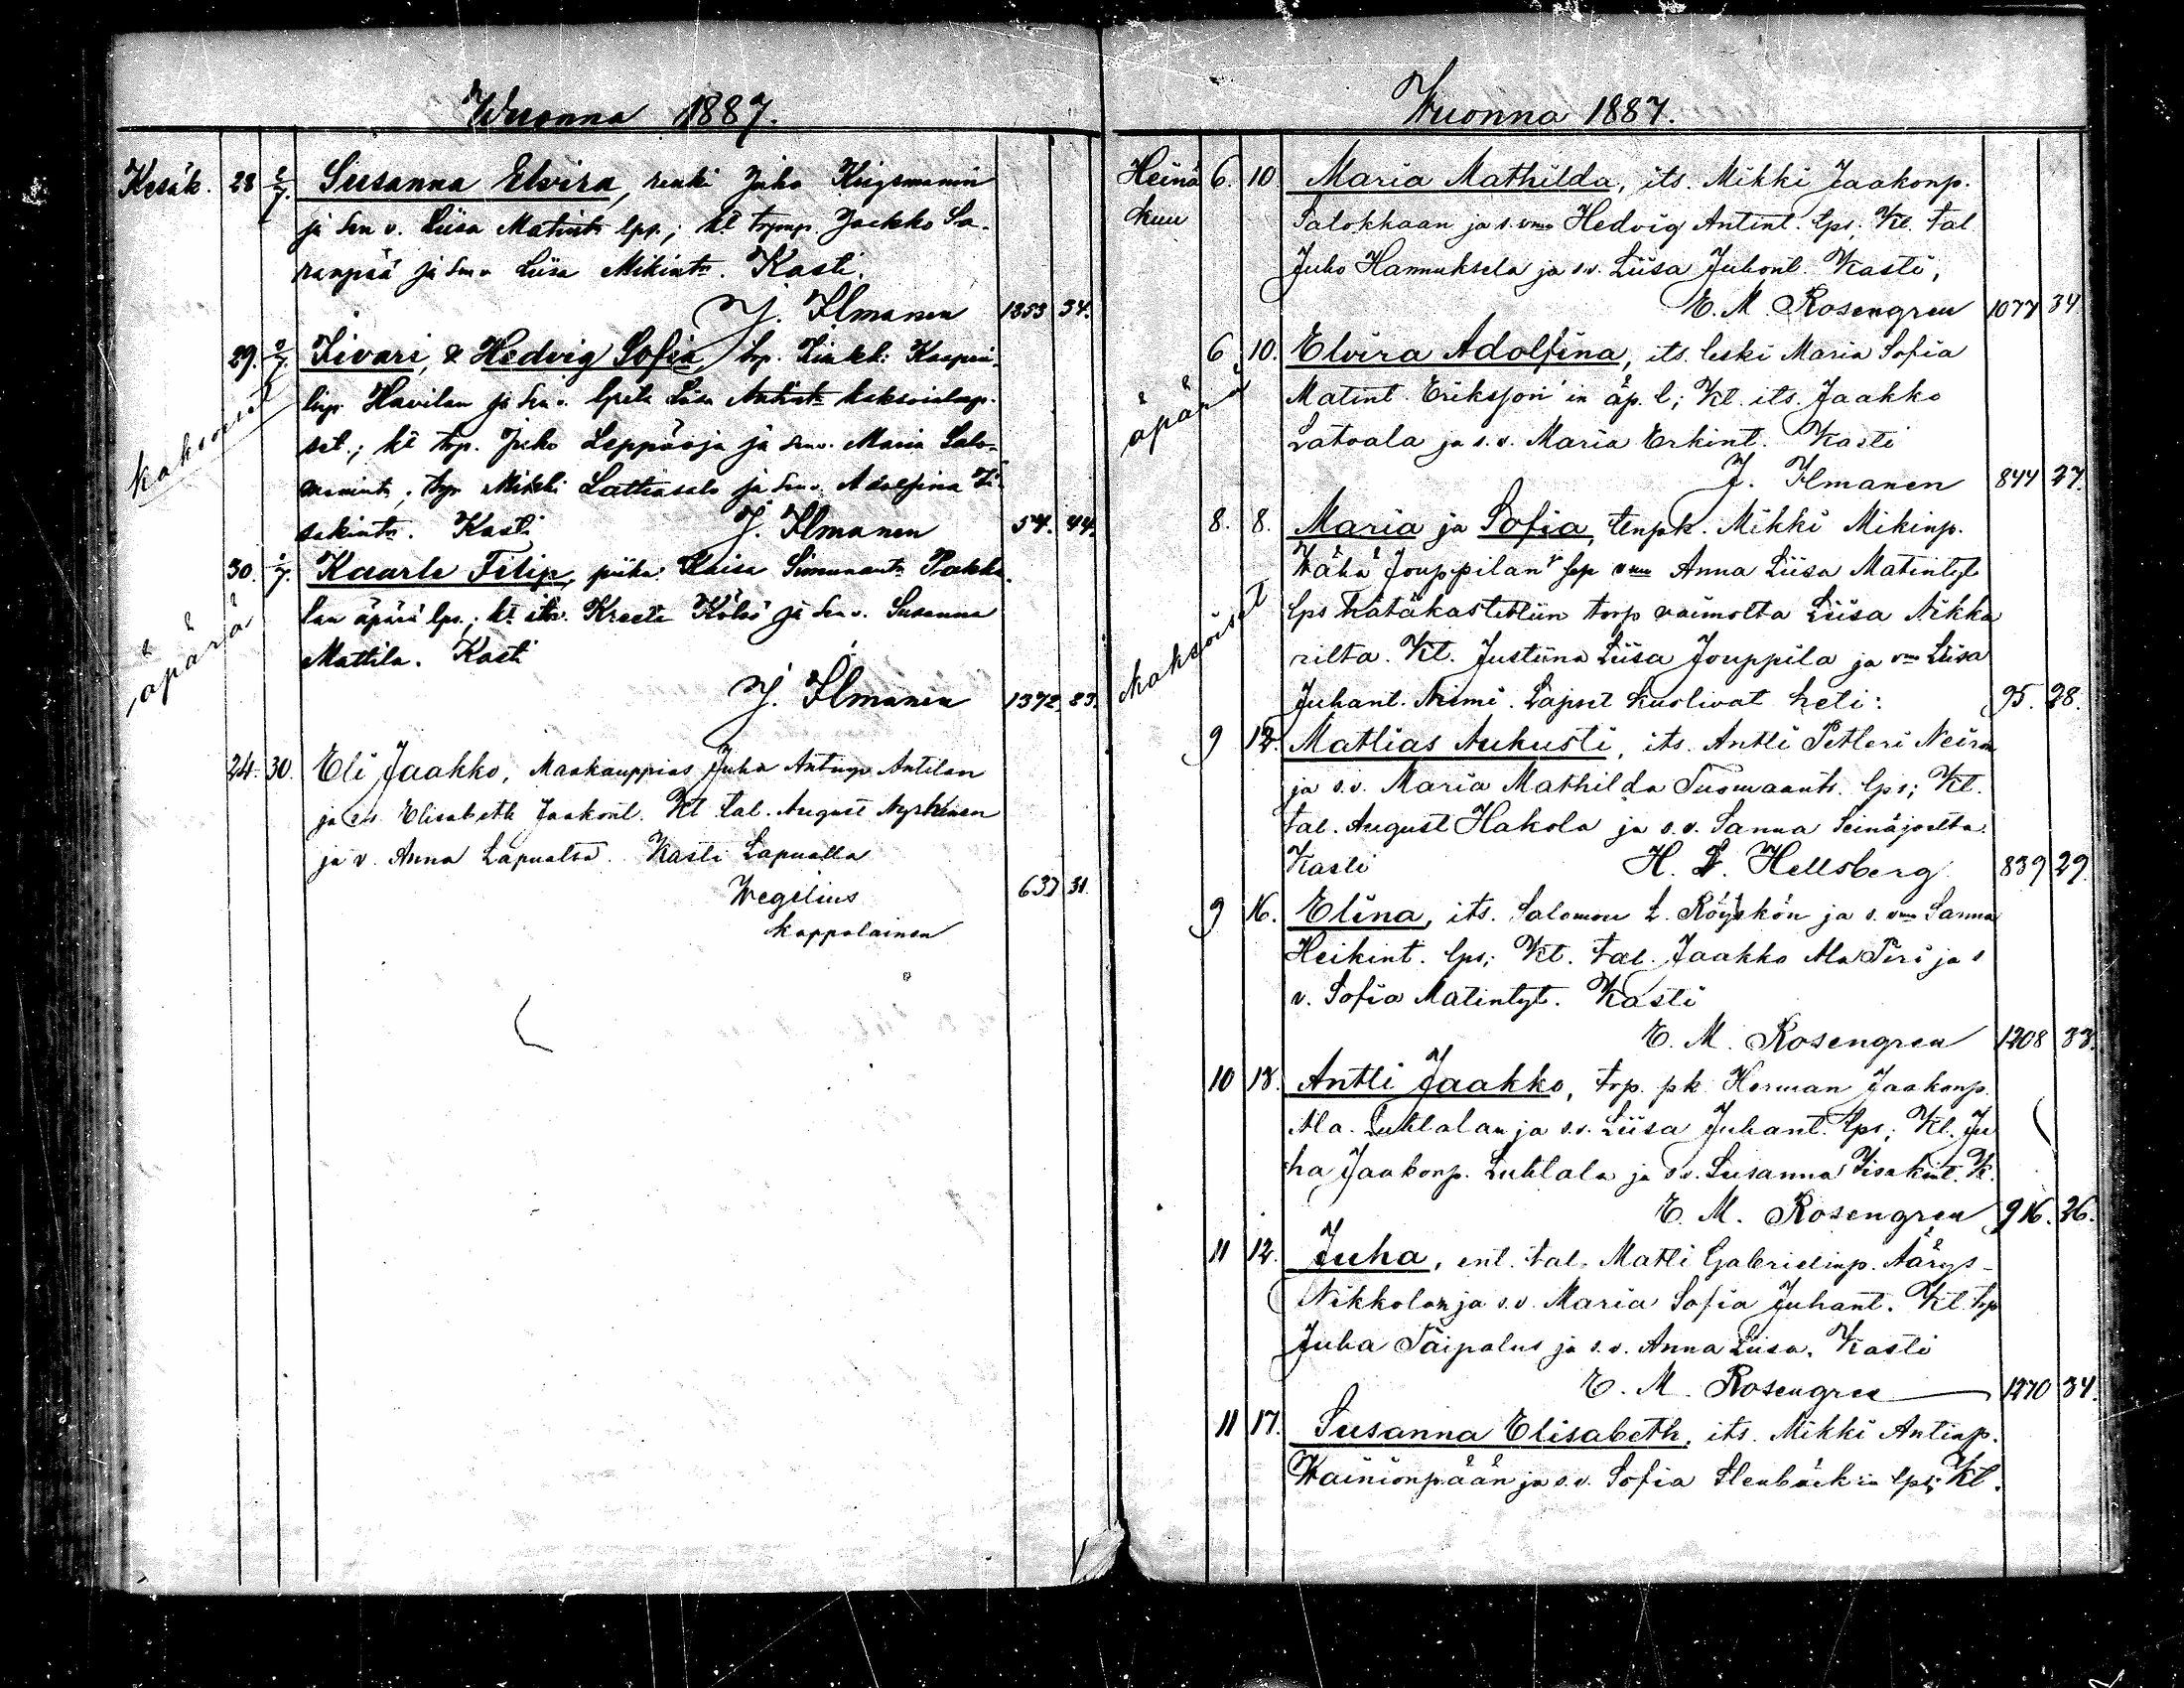 Wuonna 1887.
Kesäk. 28 2/7. Susanna Elvira, renki Juho Krigsmanin
ja sen v. Liisa Matintr lps.; kt Jaakko Sa-
ranpää ja sen v Liisa Mikintr. Kasti.
J. Ilmanen 1353 34.
29. 2/7. Iivari, & Hedvig Sofia, trp. Kaapri
Havilan ja sen v. Greta Liisa Antintr kaksoislap-
kaksoiset
set.; kt trp. Juho Leppäoja ja sen v. Maria Salo-
monintr; trp Mikki Lattiasalo ja sen v. Adolfina Ii-
sakintr. Kasti J. Ilmanen 54. 44.
30. 2/7. Kaarle Filip, piika Kaisa Simunantr Pokka-
lan äpärä lps.; kt Kreeta Kölöö ja sen v. Susanna
äpärä
Mattila. Kasti
J. Ilmanen 1372. 23.
24. 30. Eli Jaakko, Maakauppias Juha Antinp Antilan
ja Elisabeth Jaakont. Kt tal. August
ja v. Anna Lapualta. Kasti Lapualla
Wegelius 637 31.
kappalainen
Wuonna 1887.
Heinä 6. 10. Maria Mathilda, its. Mikki Jaakonp.
kuu Salokkaan ja s. vmo Hedvig Antint. lps; Kt. tal
Juho Hannuksela ja s.v. Liisa Juhont. Kasti,
E. M. Rosengren 1077 34
6 10. Elvira Adolfina, its. leski Maria Sofia
äpärä Matint. Eriksson'in äp. l; Kt. its. Jaakko
Latvala ja s. v. Maria Erkint. Kasti
J. Ilmanen 844 27.
8. 8. Maria ja Sofia, tenpk. Mikki Mikinp.
Wähä Jouppilan sep vmo Anna Liisa Matintyt
kaksoiset lps hätäkastettiin torp vaimolta Liisa Nikka
rilta. Kt. Justiina Liisa Jouppila ja vmo Liisa
Juhant. Niemi. Lapset kuolivat heti: 95. 28.
9 12. Mattias Aukusti, its. Antti Petteri
ja s.v. Maria Mathilda Tuomaant. lps; Kt.
tal. August Hakola ja s.v. Sanna Seinäjoelta.
Kasti H. L. Hellsberg. 839 29.
9 16. Elina, its. Salomon L. Röyskön ja s. vmo Sanna
Heikint. lps; Kt. tal. Jaakko Ala Piri ja s
v. Sofia Matintyt. Kasti
E. M. Rosengren 1208 33.
10 13. Antti Jaakko, trp. pk Herman Jaakonp.
Ala. Luhtalan ja s.v. Liisa Juhant. lps; Kt. Ju
ha Jaakonp. Luhtala ja s.v. Susanna Iisakint. K.
E. M. Rosengren 916. 26.
11 12. Juha, ent. tal. Matti Gabrielinp. Äärys-
Nikkolan ja s.v. Maria Sofia Juhant. Kt. trp
Juha Taipalus ja s.v. Anna Liisa. Kasti
E. M. Rosengren 1270 34.
11 17. Susanna Elisabeth, its. Mikki Antinp.
Wainionpään ja s.v. Sofia Stenbäck'in lps; Kt.